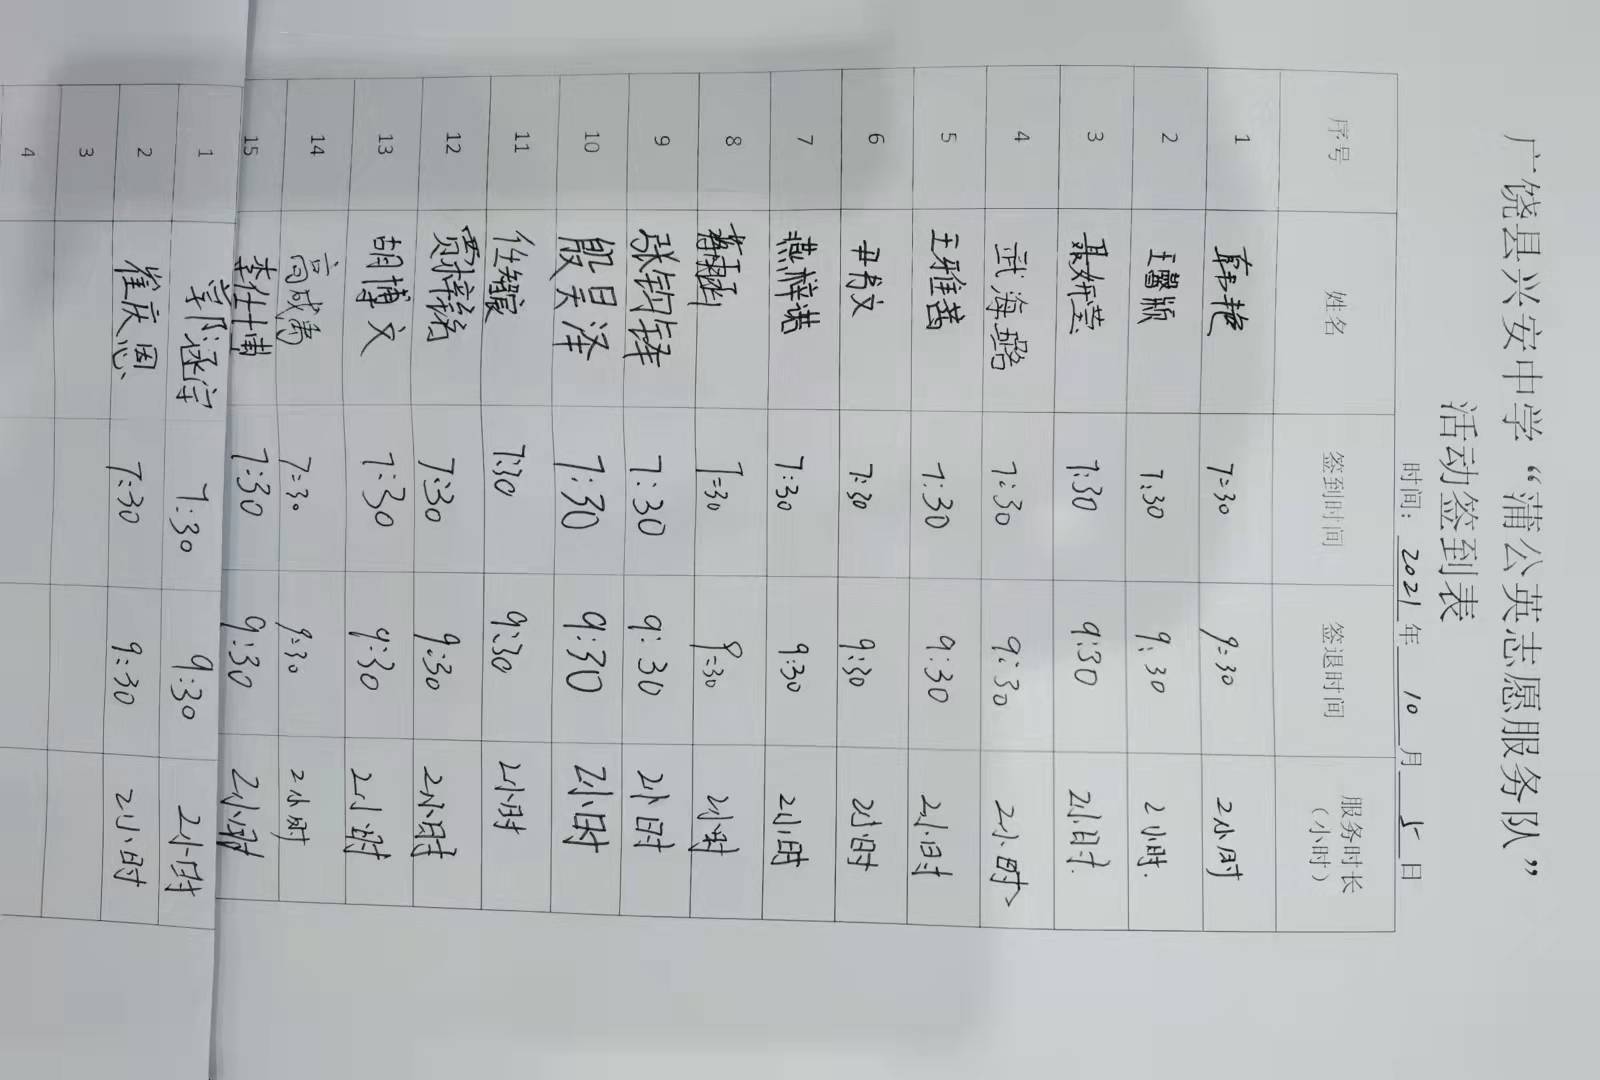 广饶县兴安中学“蒲公英志愿服务队”
活动签到表
时间：2021年10月5日
序号 姓名 签到时间 签退时间 服务时长（小时）
1 韩艳 7:30 9:30 2小时
2 王馨顺 7:30 9:30 2小时
3 聂妍莹 7:30 9:30 2小时
4 武海璐 7:30 9:30 2小时
5 王雅茜 7:30 9:30 2小时
6 尹肖文 7:30 9:30 2小时
7 燕梓诺 7:30 9:30 2小时
8 7:30 9:30 2小时
9 张钧铎 7:30 9:30 2小时
10 殷昊泽 7:30 9:30 2小时
11 任 7:30 9:30 2小时
12 贾梓 7:30 9:30 2小时
13 胡博文 7:30 9:30 2小时
14 高成 7:30 9:30 2小时
15 李仕博 7:30 9:30 2小时
1 郭涵宇 7:30 9:30 2小时
2 崔庆恩 7:30 9:30 2小时
3
4